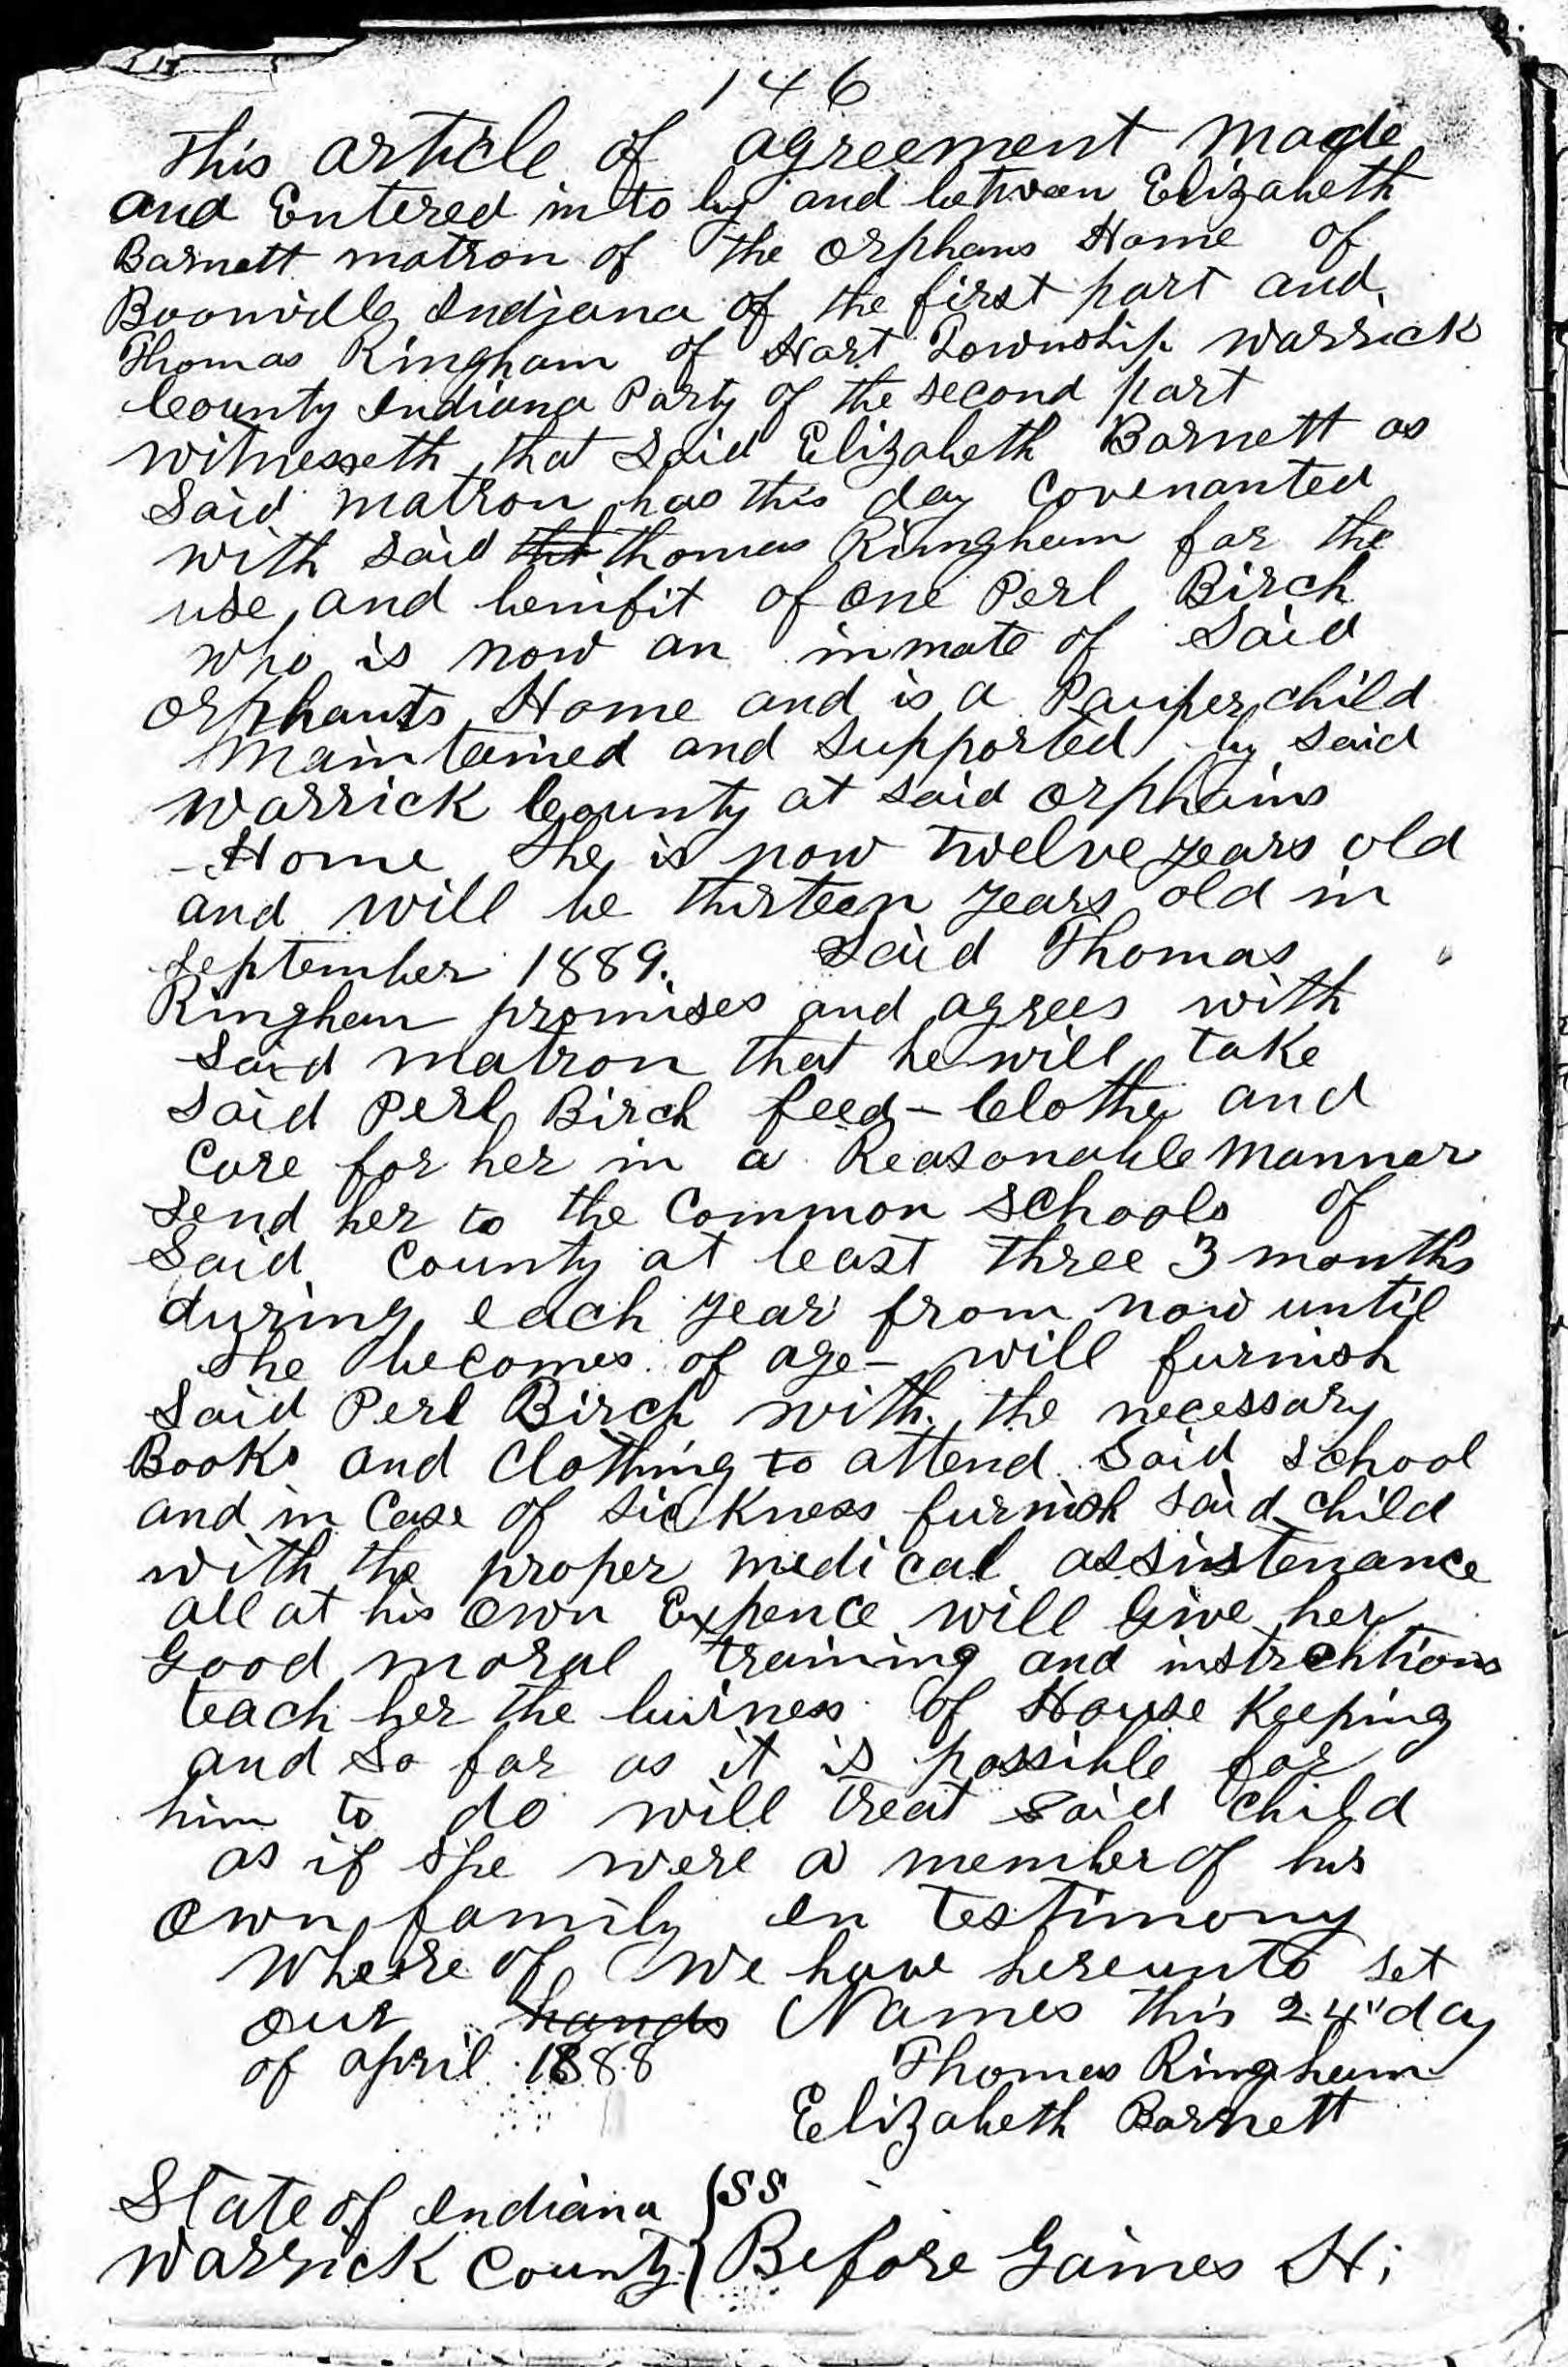 146
This article of agreement made
and Entered in to by and between Elizabeth
Barnett matron of the orphans Home of
Boonville Indiana of the first part and
Thomas Ringham of Hart Township Warrick
County Indiana Party of the second part
witnesseth that Said Elizabeth Barnett as
Said matron has this day Covenanted
with Said thomas Ringham for the
use and benifit of one Perl Birch
who is now an inmate of Said
orphants Home and is a Pauper child
Maintained and Supported by Said
Warrick County at said orphains
- Home She is now twelve years old
and will be thirteen years old in
September 1889. Said Thomas
Ringham promises and agrees with
Said matron that he will take
Said Perl Birch feed - Clothe and
Care for her in a Reasonable Manner
Send her to the Common Schools of
Said County at least three 3 months
during each year from now until
She becomes of age - will furnish
Said Perl Birch with the necessary
Books and Clothing to attend Said School
and in Case of Sickness furnish said child
with the proper medical assistenance
all at his own Expence will Give her
Good moral training and instrctions
teach her the buisness of House Keeping
and So far as it is possible for
him to do will treat said Child
as if She were a member of his
own family In testimony
Where of We have hereunto Set
our hands Names this 24" day
of april 1888 Thomas Ringham
Elizabeth Barnett
State of Indiana } SS
Warrick County } Before Gaines H;